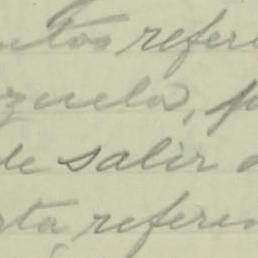 ntos referi
zuela, p
de salir a
rta, referen